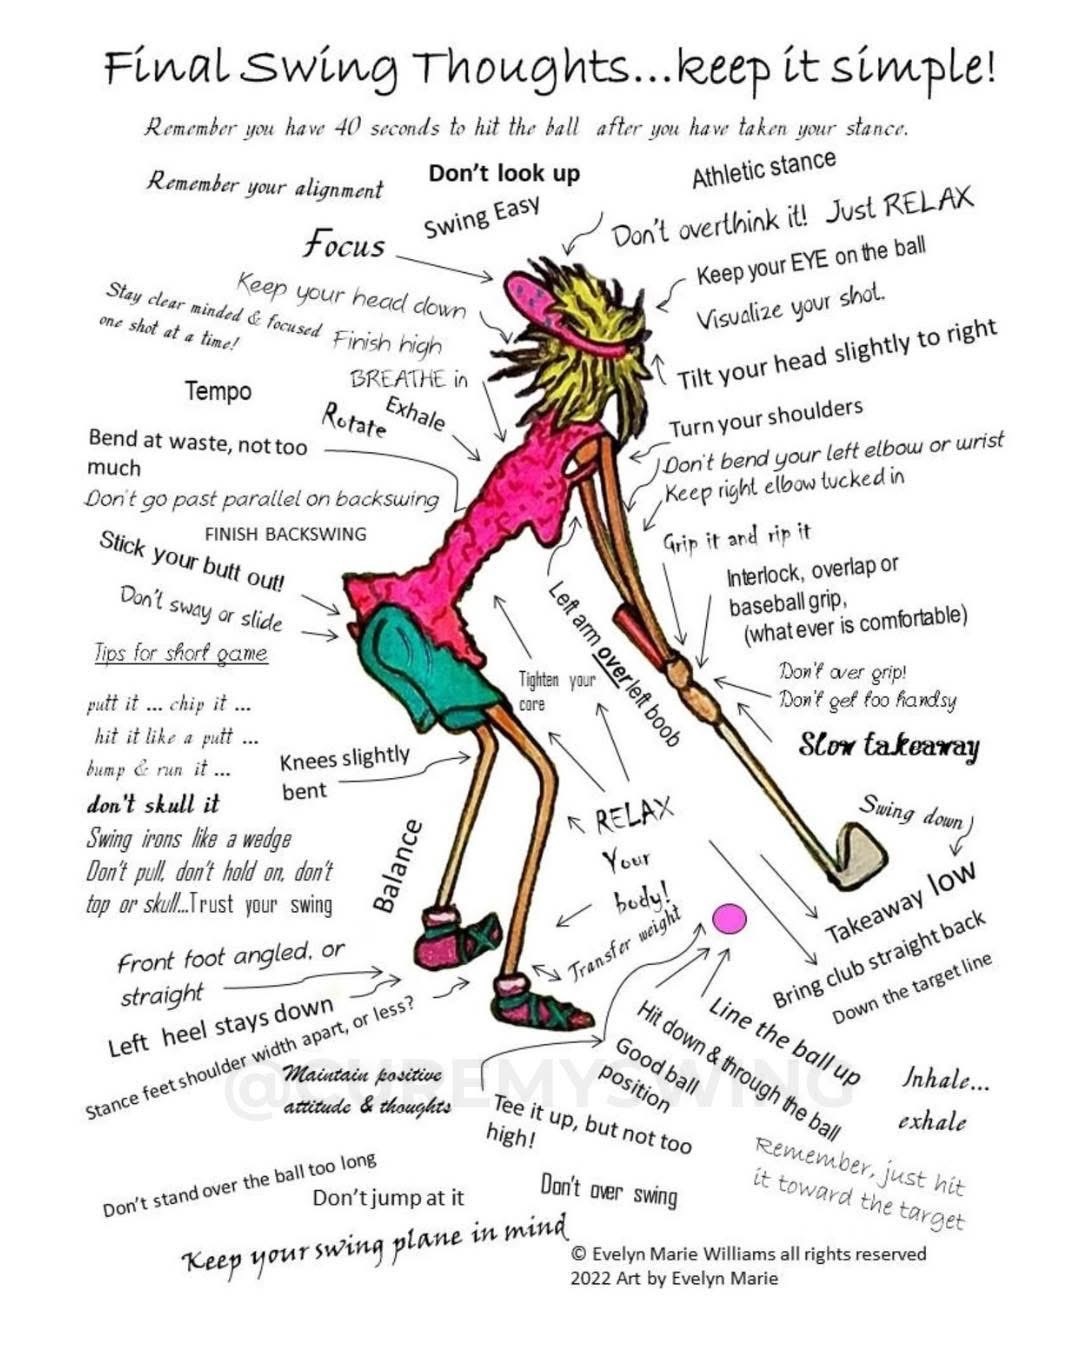 Final Swing Thoughts...keep it simple!
Remember you have 40 seconds to hit the ball after you have taken your stance.
Remember your alignment
Don't look up
Athletic stance
Swing Easy
Don't overthink it! Just RELAX
Focus
Keep your EYE on the ball
Visualize your shot.
Keep your head down
Stay clear minded & focused
one shot at a time!
Finish high
Tilt your head slightly to right
BREATHE in
Exhale
Tempo
Rotate
Turn your shoulders
Bend at waste, not too
much
Don't bend your left elbow or wrist
Keep right elbow tucked in
Don't go past parallel on backswing
FINISH BACKSWING
Grip it and rip it
Stick your butt out!
Interlock, overlap or
baseball grip,
(what ever is comfortable)
Don't sway or slide
Left arm over left boob
Tips for short game
Tighten your
core
Don't over grip!
Don't get too handsy
putt it ... chip it ...
hit it like a putt ...
bump & run it ...
don't skull it
Swing irons like a wedge
Don't pull, don't hold on, don't
top or skull...Trust your swing
Slow takeaway
Knees slightly
bent
Swing down
RELAX
Your
body!
Balance
Takeaway low
Bring club straight back
Down the target line
Transfer weight
Front foot angled, or
straight
Left heel stays down
Stance feet shoulder width apart, or less?
Line the ball up
Hit down & through the ball
Good ball
position
@CUREMYSWING
Maintain positive
attitude & thoughts
Tee it up, but not too
high!
Inhale...
exhale
Remember, just hit
it toward the target
Don't stand over the ball too long
Don't jump at it
Don't over swing
Keep your swing plane in mind
© Evelyn Marie Williams all rights reserved
2022 Art by Evelyn Marie